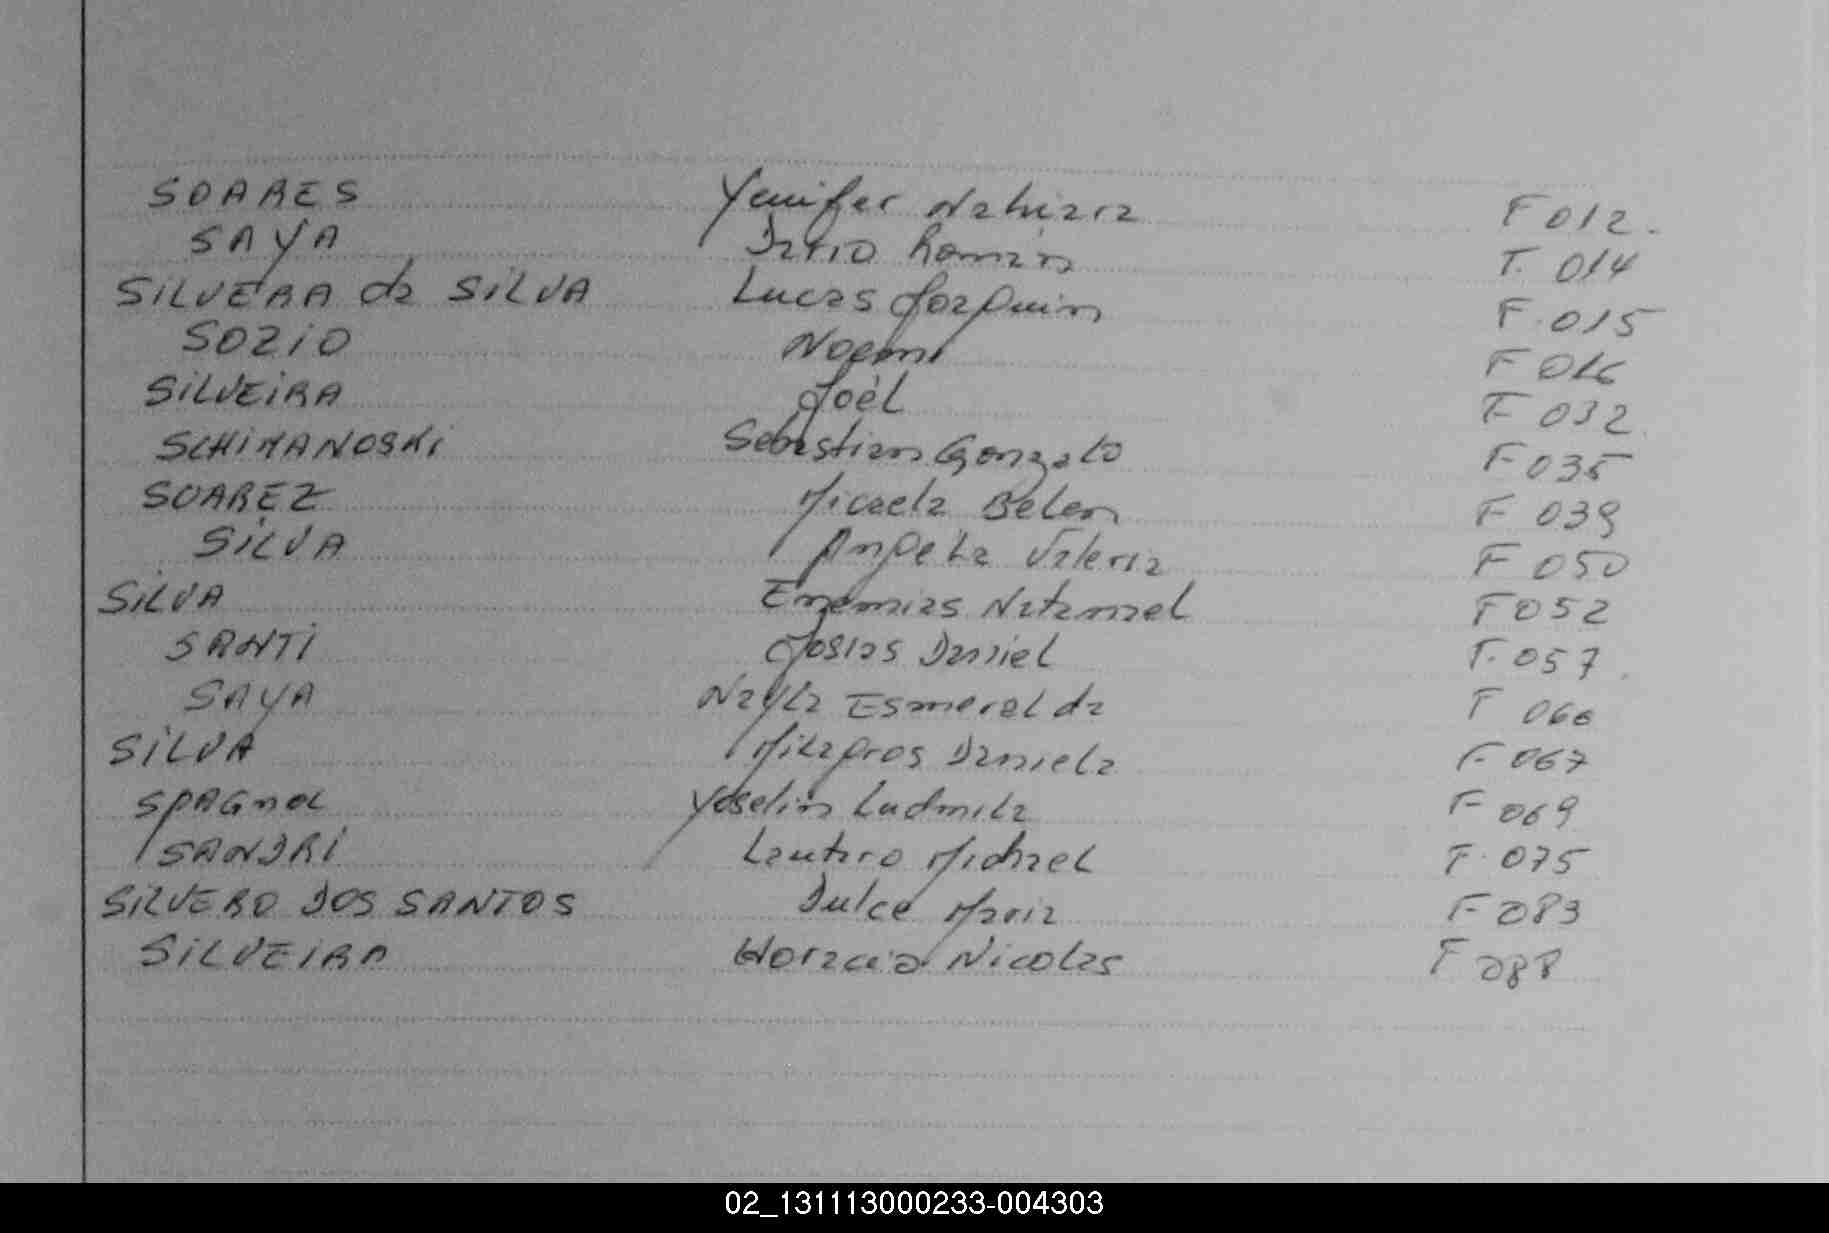 SOARES Yenifer Nahiara F 012.
SAYA Dario Roman F. 014
SILVEIRA da SILVA Lucas Joaquin F. 015
SOZIO Noemi F 016
SILVEIRA Joel F 032
SCHIMANOSKI Sebastian Gonzalo F 035
SOAREZ Micaela Belen F 039
SILVA Angela Valeria F 050
SILVA Enemias Natanael F 052
SANTI Josias Daniel F. 057
SAYA Nayla Esmeralda F 066
SILVA Milagros Daniela F. 067
SPAGnol Yoselin Ludmila F 069
SANDRI Lautaro Michael F. 075
SILVERO DOS SANTOS Dulce Maria F 083
SILVEIRA Horacio Nicolas F 088
02_131113000233-004303